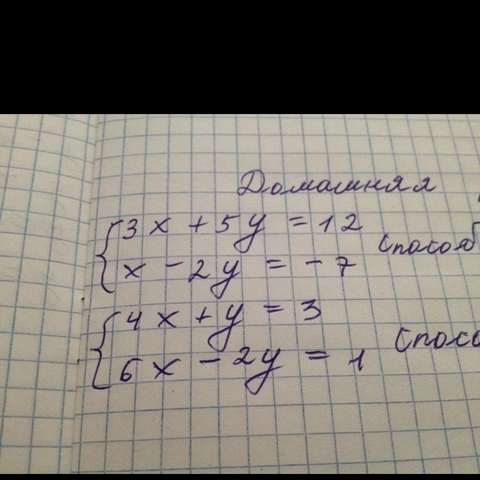 Домашняя
3x + 5y = 12
x - 2y = - 7
способ
4x + y = 3
6x - 2y = 1